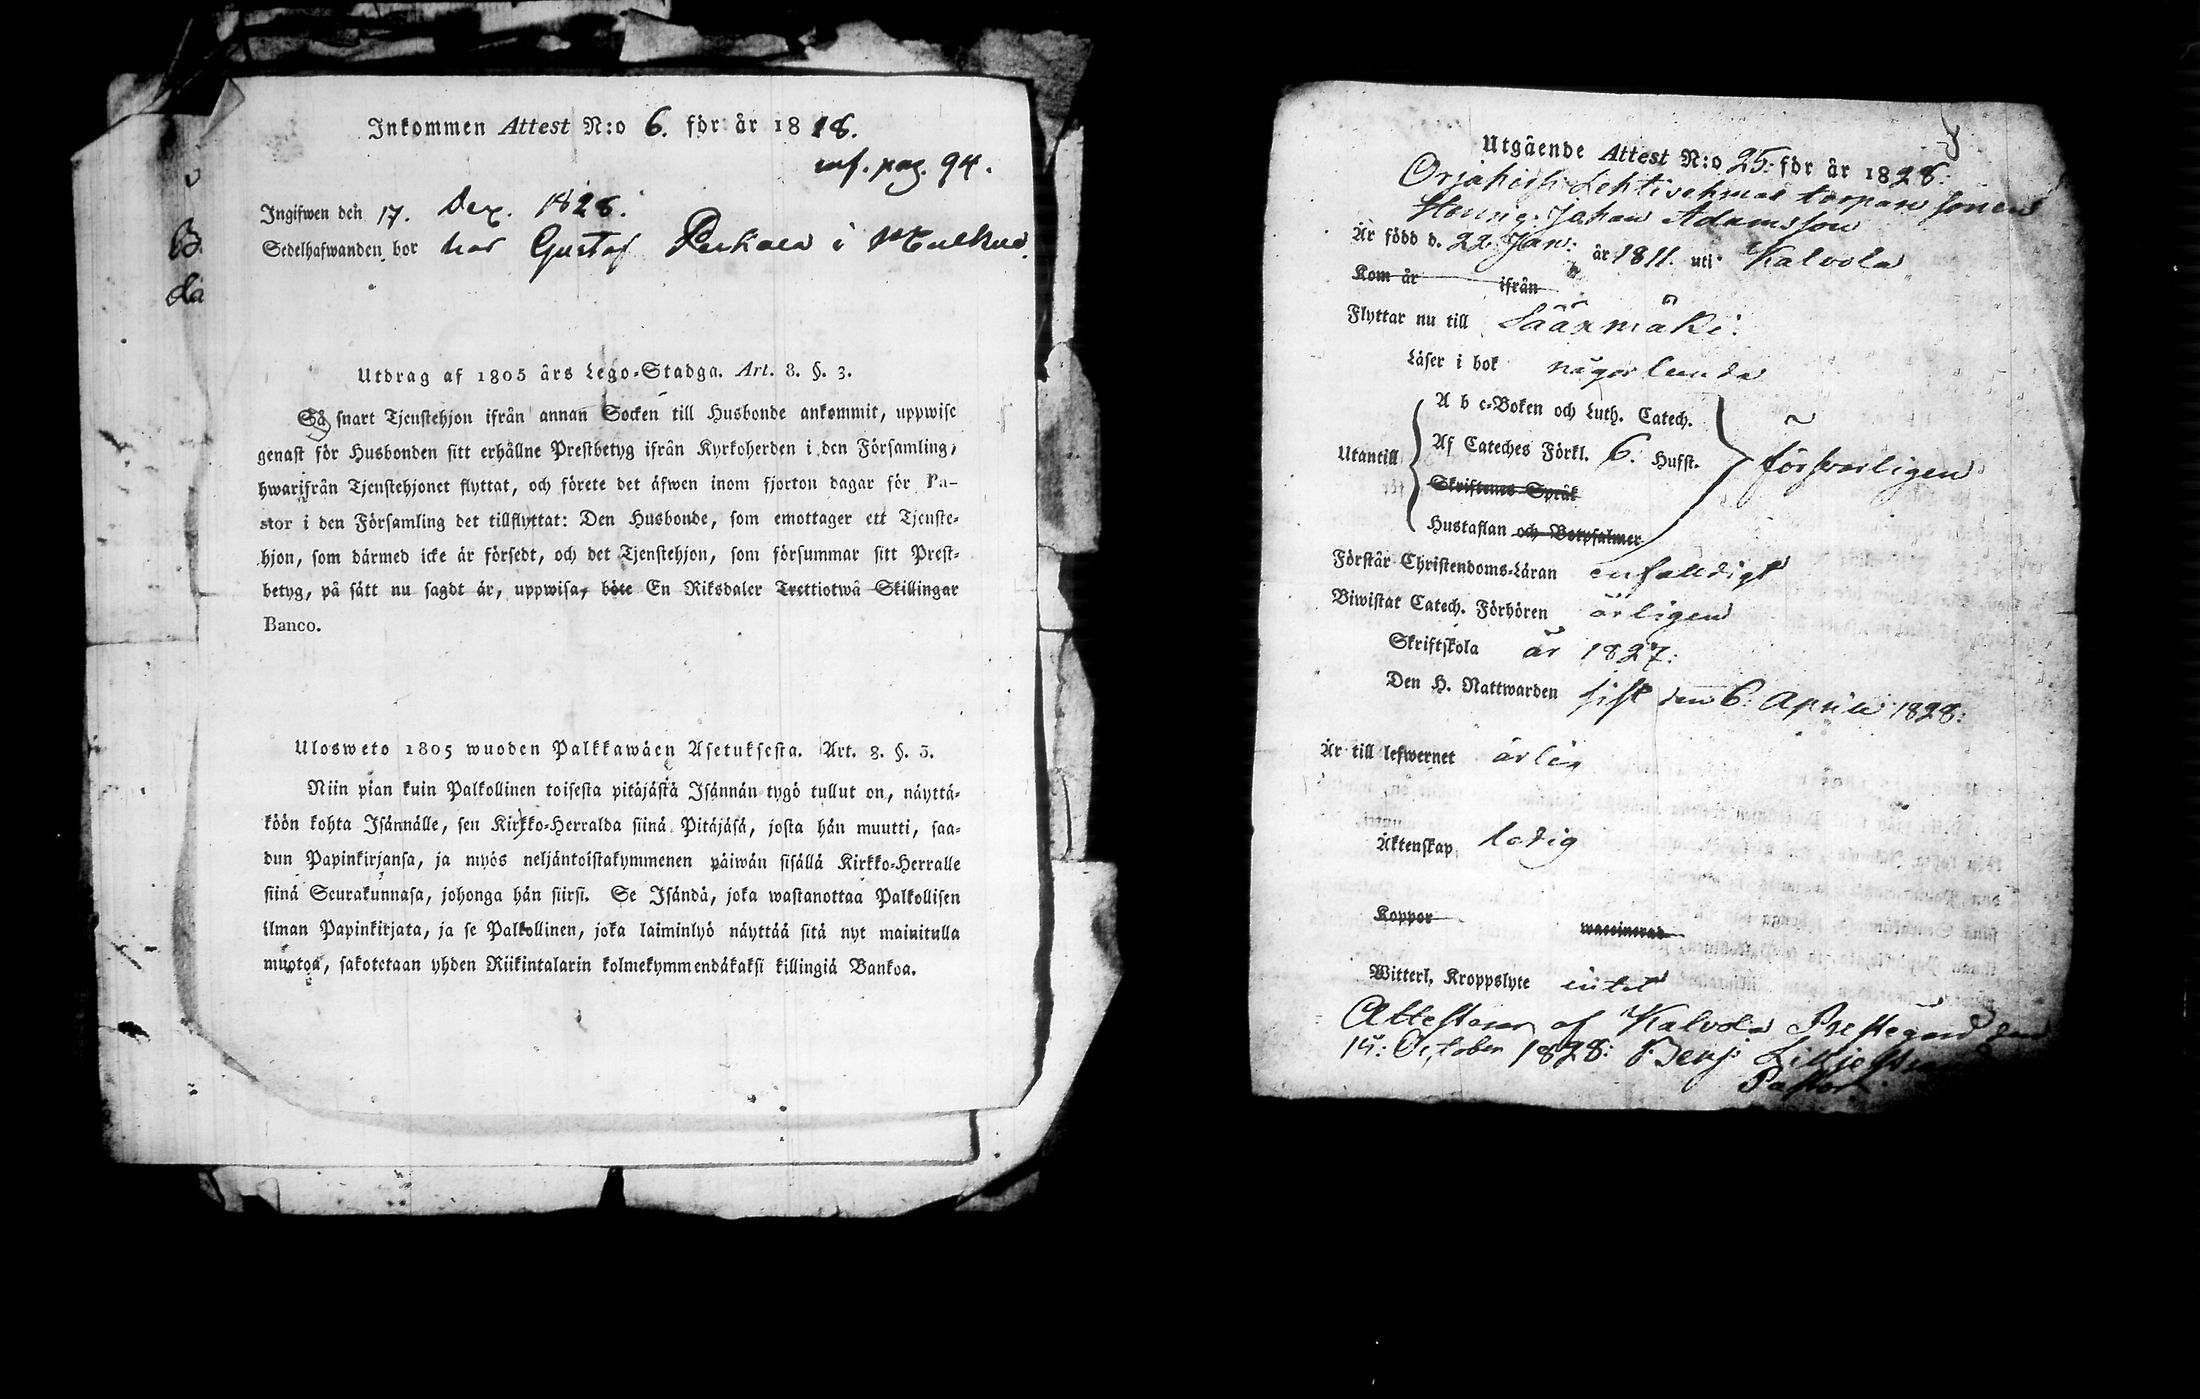 Inkommen Attest N:o 6. för år 1828.
inf. pag. 94.
Ingifwen den 17. Dex. 1828.
Sedelhafwanden bor hos Gustaf i
B.
da
Utdrag af 1805 års Lego-Stadga. Art. 8. §. 3.
Så snart Tjenstehjon ifrån annan Socken till Husbonde ankommit, uppwise
genast för Husbonden sitt erhållne Prestbetyg ifrån Kyrkoherden i den Församling,
hwarifrån Tjenstehjonet flyttat, och förete det äfwen inom fjorton dagar för Pa-
stor i den Församling det tillflyttat: Den Husbonde, som emottager ett Tjenste-
hjon, som därmed icke är försedt, och det Tjenstehjon, som försummar sitt Prest-
betyg, på sätt nu sagdt är, uppwisa, böte En Riksdaler Trettiotwå Skillingar
Banco.
Ulosweto 1805 wuoden Palkkawäen Asetuksesta. Art. 8. §. 3.
Niin pian kuin Palkollinen toisesta pitäjästä Isännän tygö tullut on, näyttä-
köön kohta Isännälle, sen Kirkko-Herralda siinä Pitäjäsä, josta hän muutti, saa-
dun Papinkirjansa, ja myös neljäntoistakymmenen päiwän sisällä Kirkko-Herralle
siinä Seurakunnasa, johonga hän siirsi. Se Isändä, joka wastanottaa Palkollisen
ilman Papinkirjata, ja se Palkollinen, joka laiminlyö näyttää sitä nyt mainitulla
muotoa, sakotetaan yhden Riikintalarin kolmekymmendäkaksi killingiä Bankoa.
Utgående Attest N:o 25: för år 1828:
Orjahish Lehtisehmas torpare sonen
Henric Johan Adamsson
Är född d. 22 Jan: år 1811. uti Kalvola
Kom år ifrån
Flyttar nu till Sääxmäki.
Läser i bok någorlunda
A b c-Boken och Luth. Catech.
Utantill Af Cateches Förkl. 6. Hufst. försvarligen
Skriftenes Språk
Hustaflan och Botpsalmer
Förstår Christendoms-Läran enfalldigt
Biwistat Catech. Förhören årligen
Skriftskola år 1827:
Den H. Nattwarden sist den 6. April 1828:
Är till lefwernet ärlig
Äktenskap ledig
Koppor waccinerad
Witterl. Kroppslyte intet
Attesterar af Kalvola Prestegård den
14: October 1828: Benj: Lilljestra
Pastor